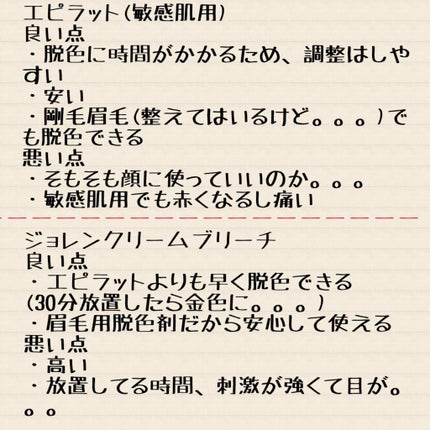 エピラット(敏感肌用)
良い点
・脱色に時間がかかるため、調整はしや
すい
・安い
・剛毛眉毛(整えてはいるけど。。。)で
も脱色できる
悪い点
・そもそも顔に使っていいのか。。。
・敏感肌用でも赤くなるし痛い
ジョレンクリームブリーチ
良い点
・エピラットよりも早く脱色できる
(30分放置したら金色に。。。)
・眉毛用脱色剤だから安心して使える
悪い点
・高い
・放置してる時間、刺激が強くて目が。
。。